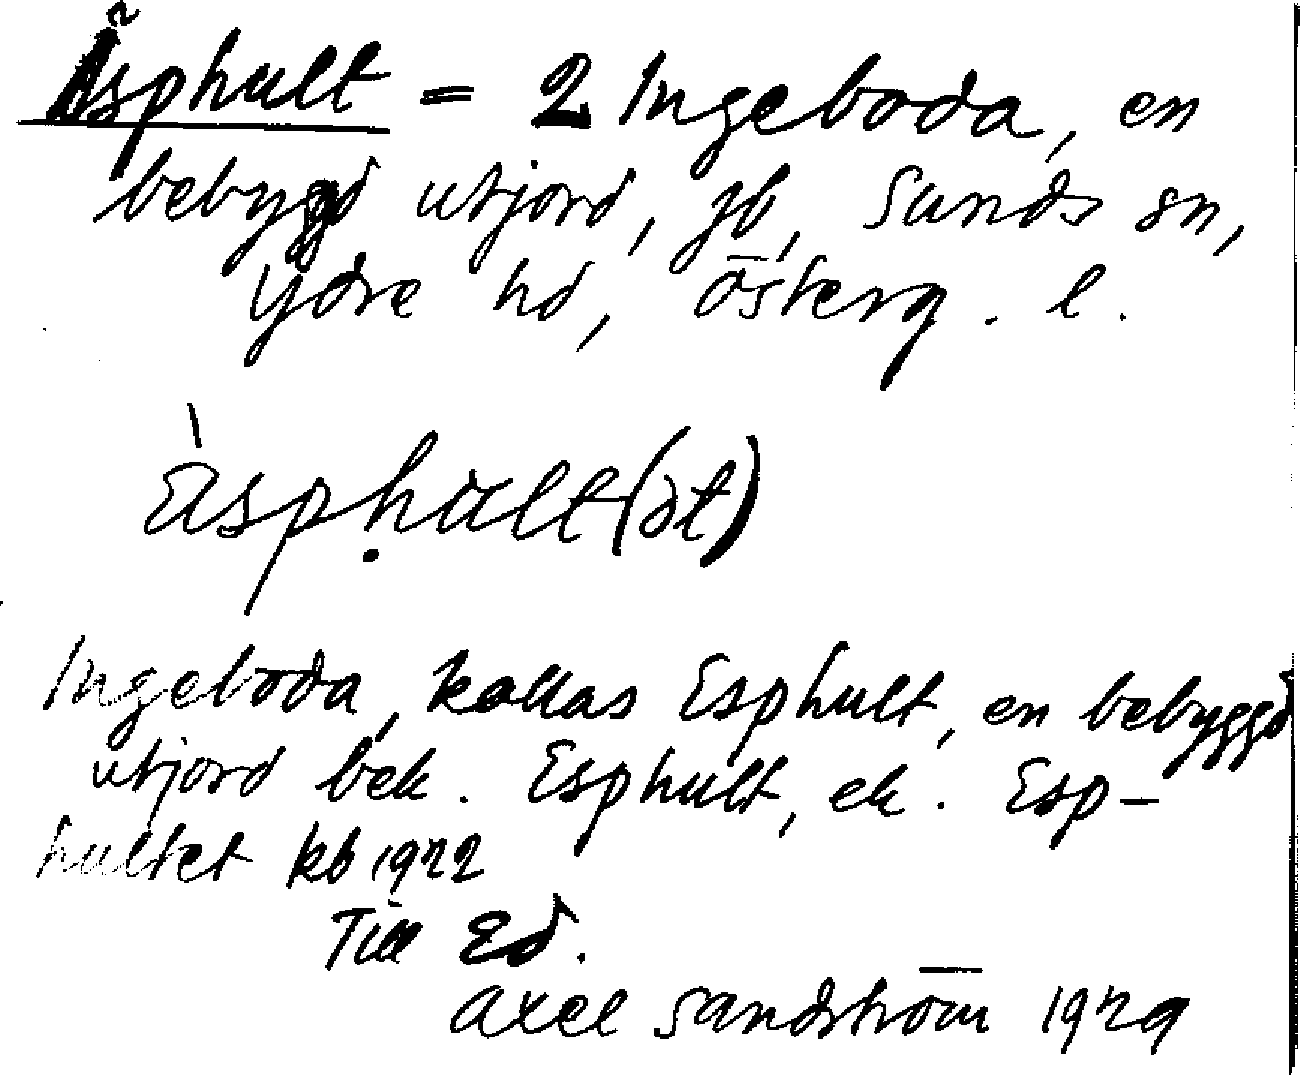 Äsphult = 2 Ingeboda, en
bebyggd utjord, jb, Sunds sn,
Ydre hd, Österg. l.
äsphult(ət)
Ingeboda, kallas Esphult, en bebyggd
utjord bek. Esphult, ek. Esp-
hultet kb 1922
Till Ed.
Axel Sandström 1929